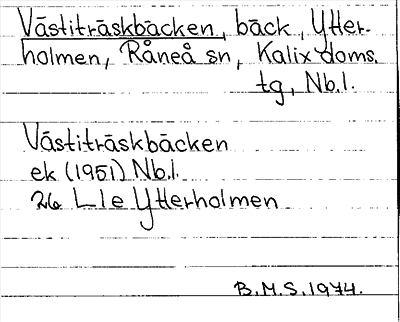 Västiträskbäcken, bäck, Ytter-
holmen, Råneå sn, Kalix doms.
tg, Nb.l.
Västiträskbäcken
ek (1951) Nb.l.
26 L1e Ytterholmen
B.M.S. 1974.